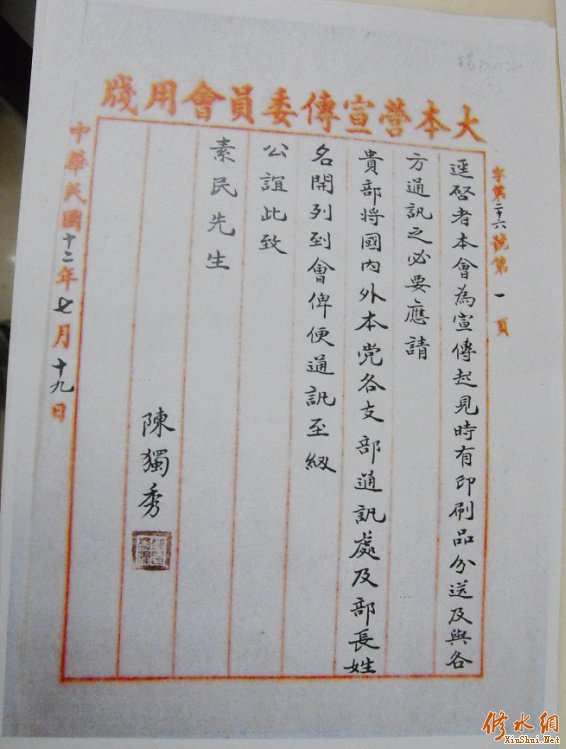 大本營宣傳委員會用牋
字第二十六號第一頁
逕啓者本會為宣傳起見時有印刷品分送及與各
方通訊之必要應請
貴部將國內外本党各支部通訊處及部長姓
名開列到會俾便通訊至紉
公誼此致
素民先生
陳獨秀
中華民國十二年七月十九日
修水網
XiuShui.Net